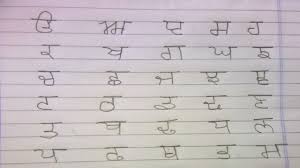 ੳ ਅ ੲ ਸ ਹ
ਕ ਖ ਗ ਘ ਙ
ਚ ਛ ਜ ਝ ਞ
ਟ ਠ ਡ ਢ ਣ
ਤ ਥ ਦ ਧ ਨ
ਪ ਫ ਬ ਭ ਮ